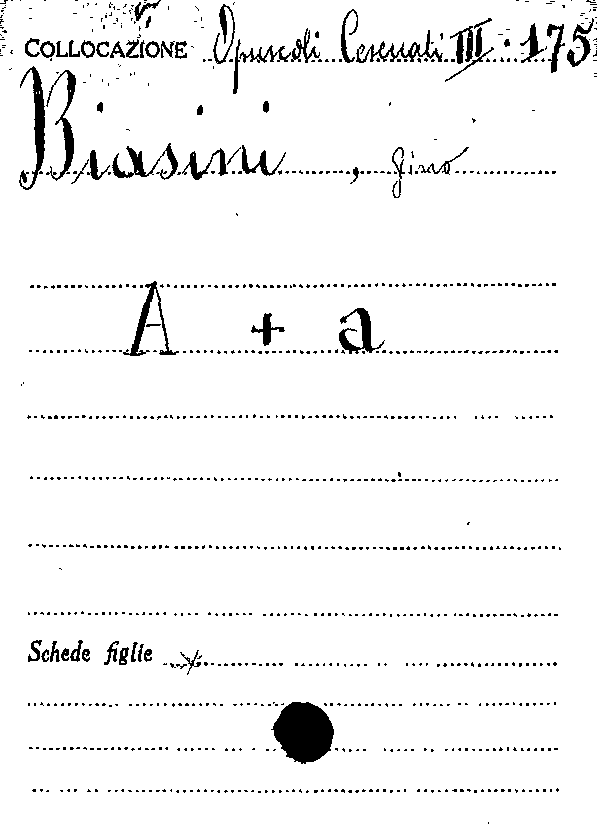 COLLOCAZIONE Opuscoli Cesenati III. 175
Biasini, Gino
A + a
Schede figlie